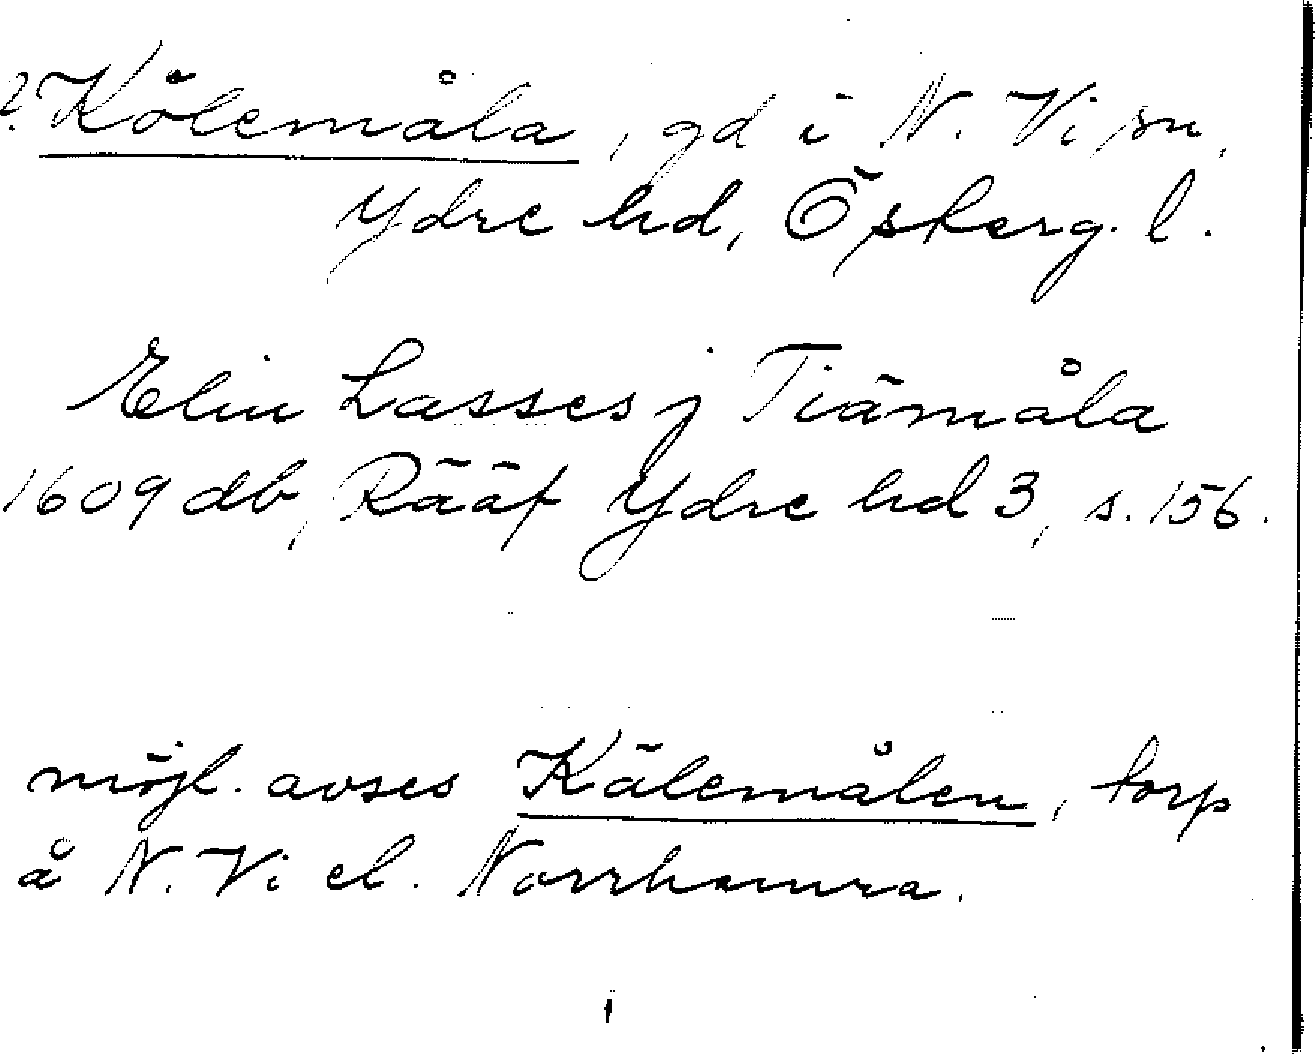 ? Kölemåla, gd i N. Vi sn,
Ydre hd, Österg. l.
Elin Lasses j Tiämåla
1609 db, Rääf Ydre hd 3, s. 156.
möjl. avses Kälemålen, torp
å N. Vi el. Norrhamra.